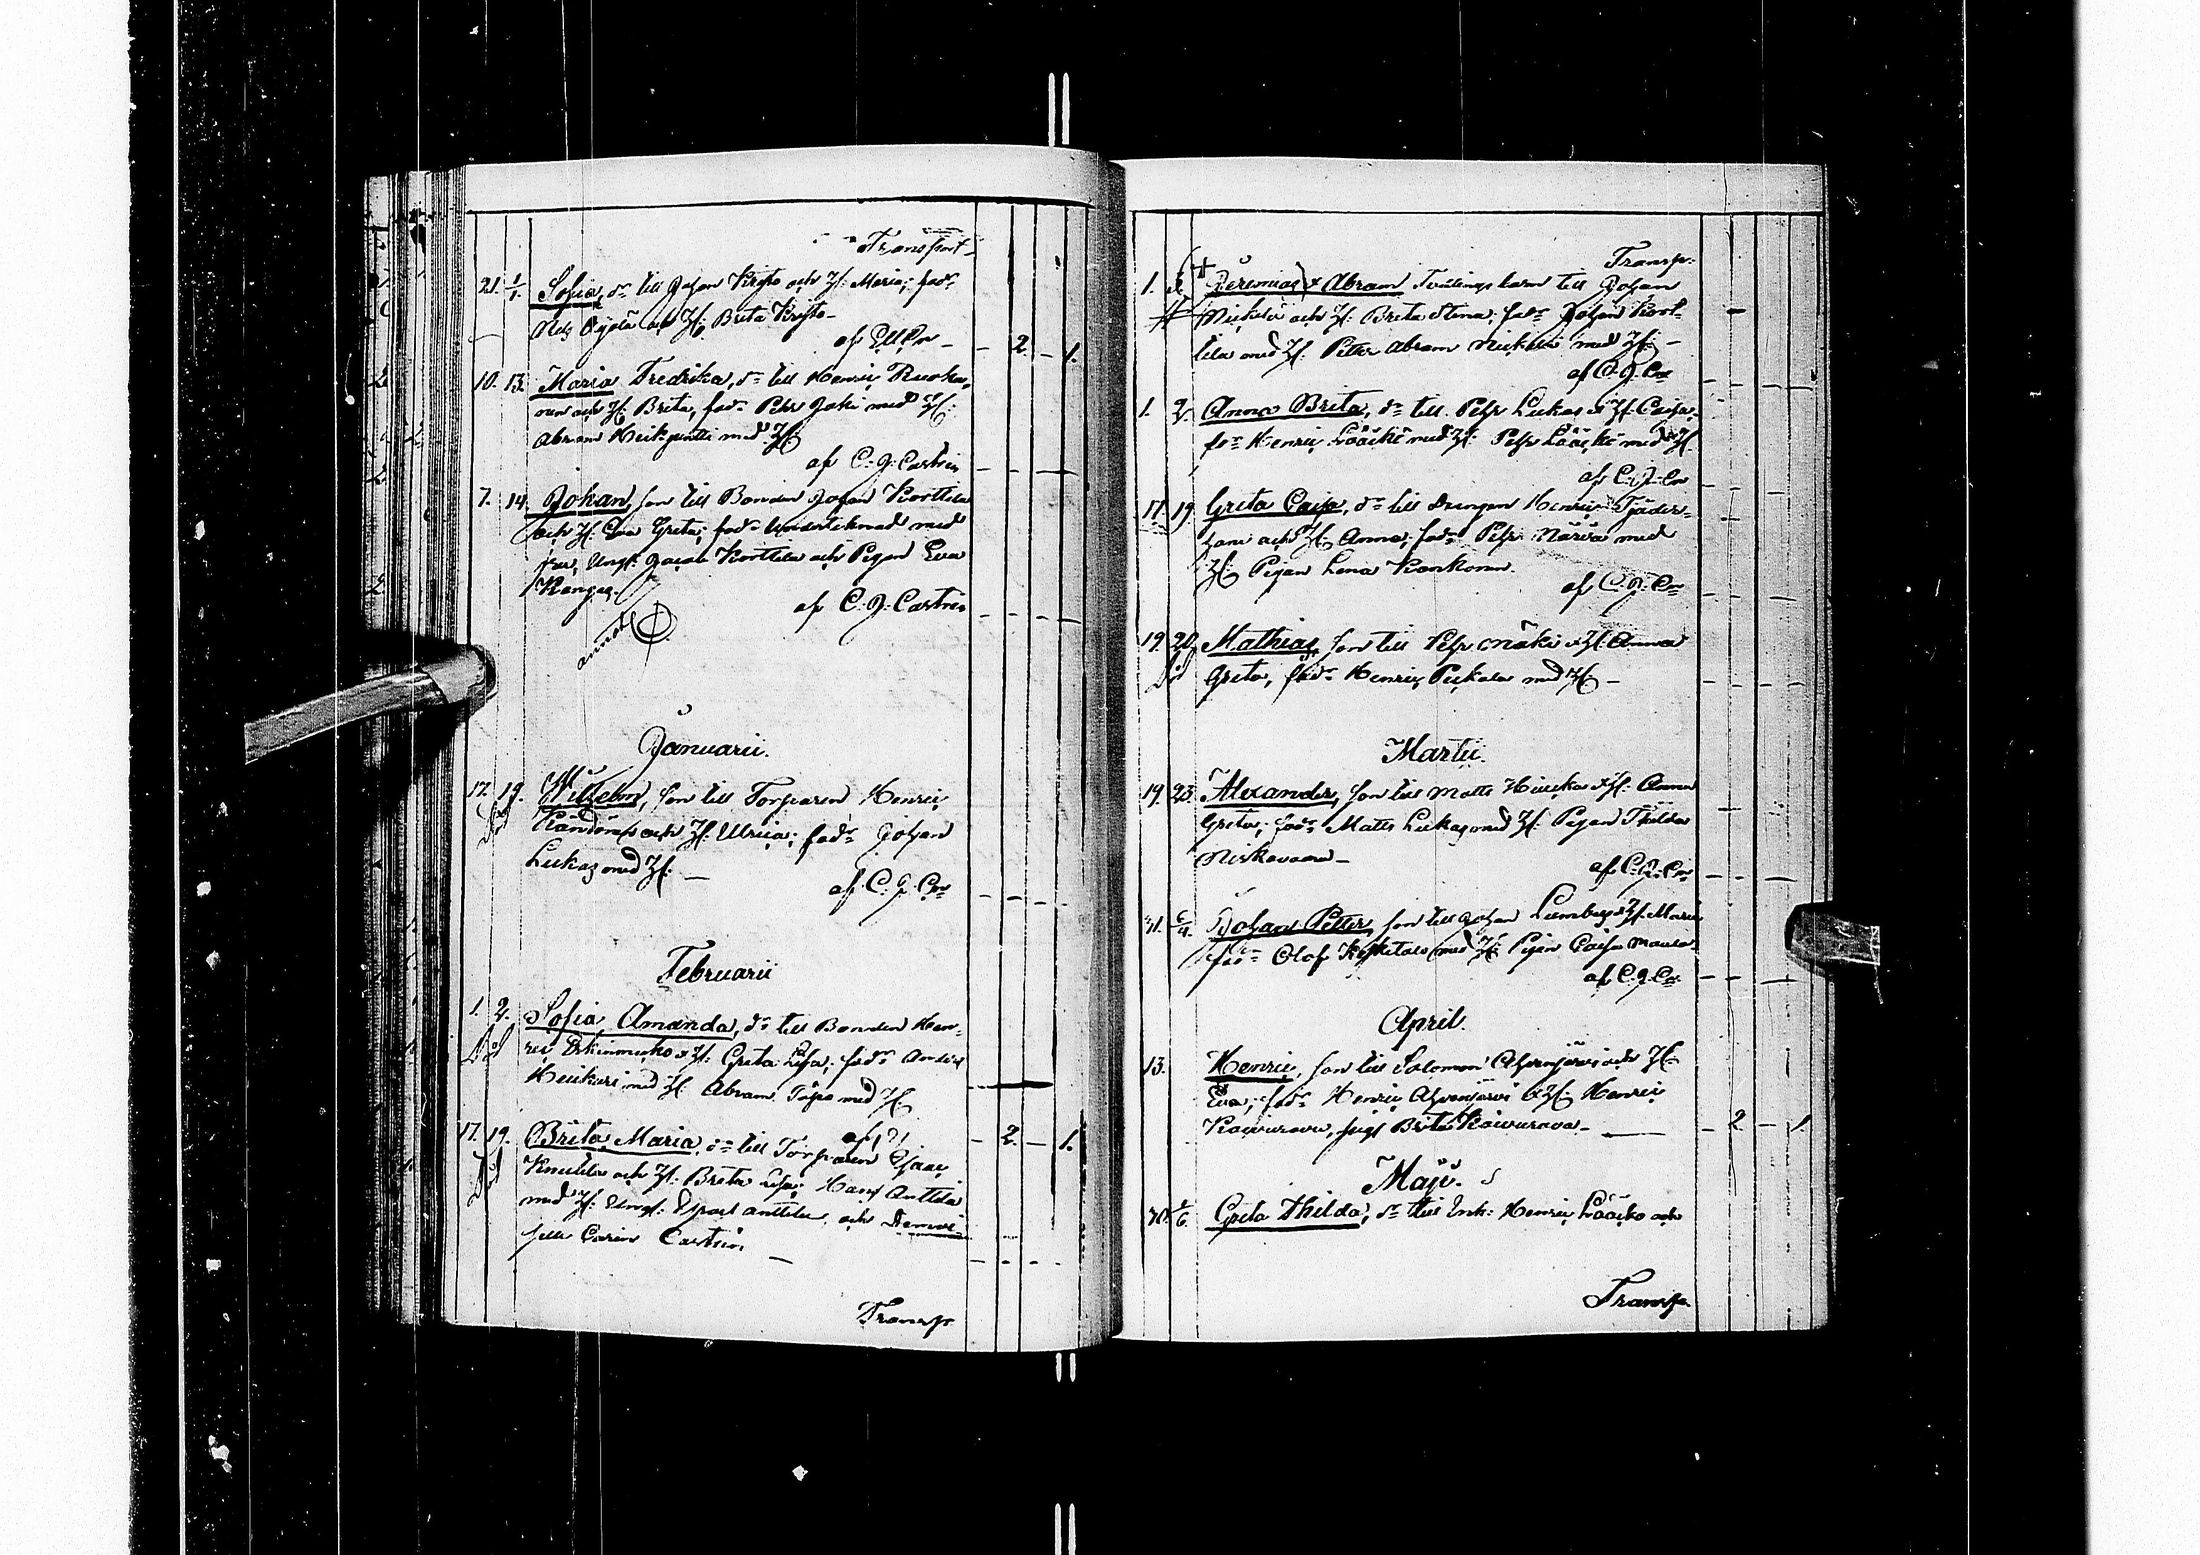 Transport
21. 1/1. Sofia, dr till Johan Kristo och H: Maria; fadr
Nils Öjola och H: Brita Kristo
af
2 1.
10. 13. Maria Fredrika, dr till Henric Ruoka,
nen och H: Brita, fadr Pehr Joki med H:
Abram Heikguntti med H:
af C. J. Castrén
7. 14. Johan, son till Bonden Johan Korttila
och H: Eva Greta; fadr Underteknad med
fru, Ungk: Jacob Korttila och Pigan Eva
Kangas.
af C. J. Castrén
annot
Januarii.
17. 19. Wilhelm, son till Torparen Henric
död och H: Ulrica; fadr Johan
Lukas med H:
af C. J. Cn
Februarii
1. 2. Sofia Amanda, dr till Bonden Hen-
död ric Erkinmicko & H: Greta Lisa; fadr Anders
Heickari med H: Abram med H:
af
2. 1.
17. 19. Brita Maria, dr till Torparen Esaic
död Knuttila och H: Brita Lisa; Hans Anttila
med H: Ungk: Anttila, och Demoi-
selle Carin Castrén
Transp
Transp:
1. 2. Jeremias, & Abram Tvillings barn till Johan
Mickelä och H: Brita Stina; fadr Johan Kort-
tila med H: Petter Abram Mickelä med H:
af C. J. Cn
1. 2. Anna Brita, dr till Pehr Lukas & H: Caisa.
fadr Henric Lääckö med H: Pehr Lääckö med H:
af C. J. Cn
17. 19. Greta Caisa, dr till Drengen Henric Tjäder-
och H: Anna; fadr Pehr Närvä med
H: Pigan Lena Kankonen.
af C. J. Cn
19. 20. Mathias, son till Pehr Mäki & H: Anna
död Greta, fadr Henric Pickala med H:
Martii.
19. 23. Alexander, son till Matts Hiucka & H: Anna
Greta; fadr Matts Lukas med H: Pigan Thilda
Niskavaara
af C. J. Cn
31. 6/4. Johan Petter, son till Johan Lumberg & H: Maria
fadr Olof Keskitalo med H: Pigan Caisa
af C. J. Cn
April.
13. Henric, son till Salomon Ahvenjärvi och H:
Eva; fadr Henric Ahvenjärvi & H: Henric
Kaivurova, pig: Brita Kaivurova.
2 1.
Maji.
30. 1/6. Greta Thilda, dr till Enk: Henric Lääckö och
Transp